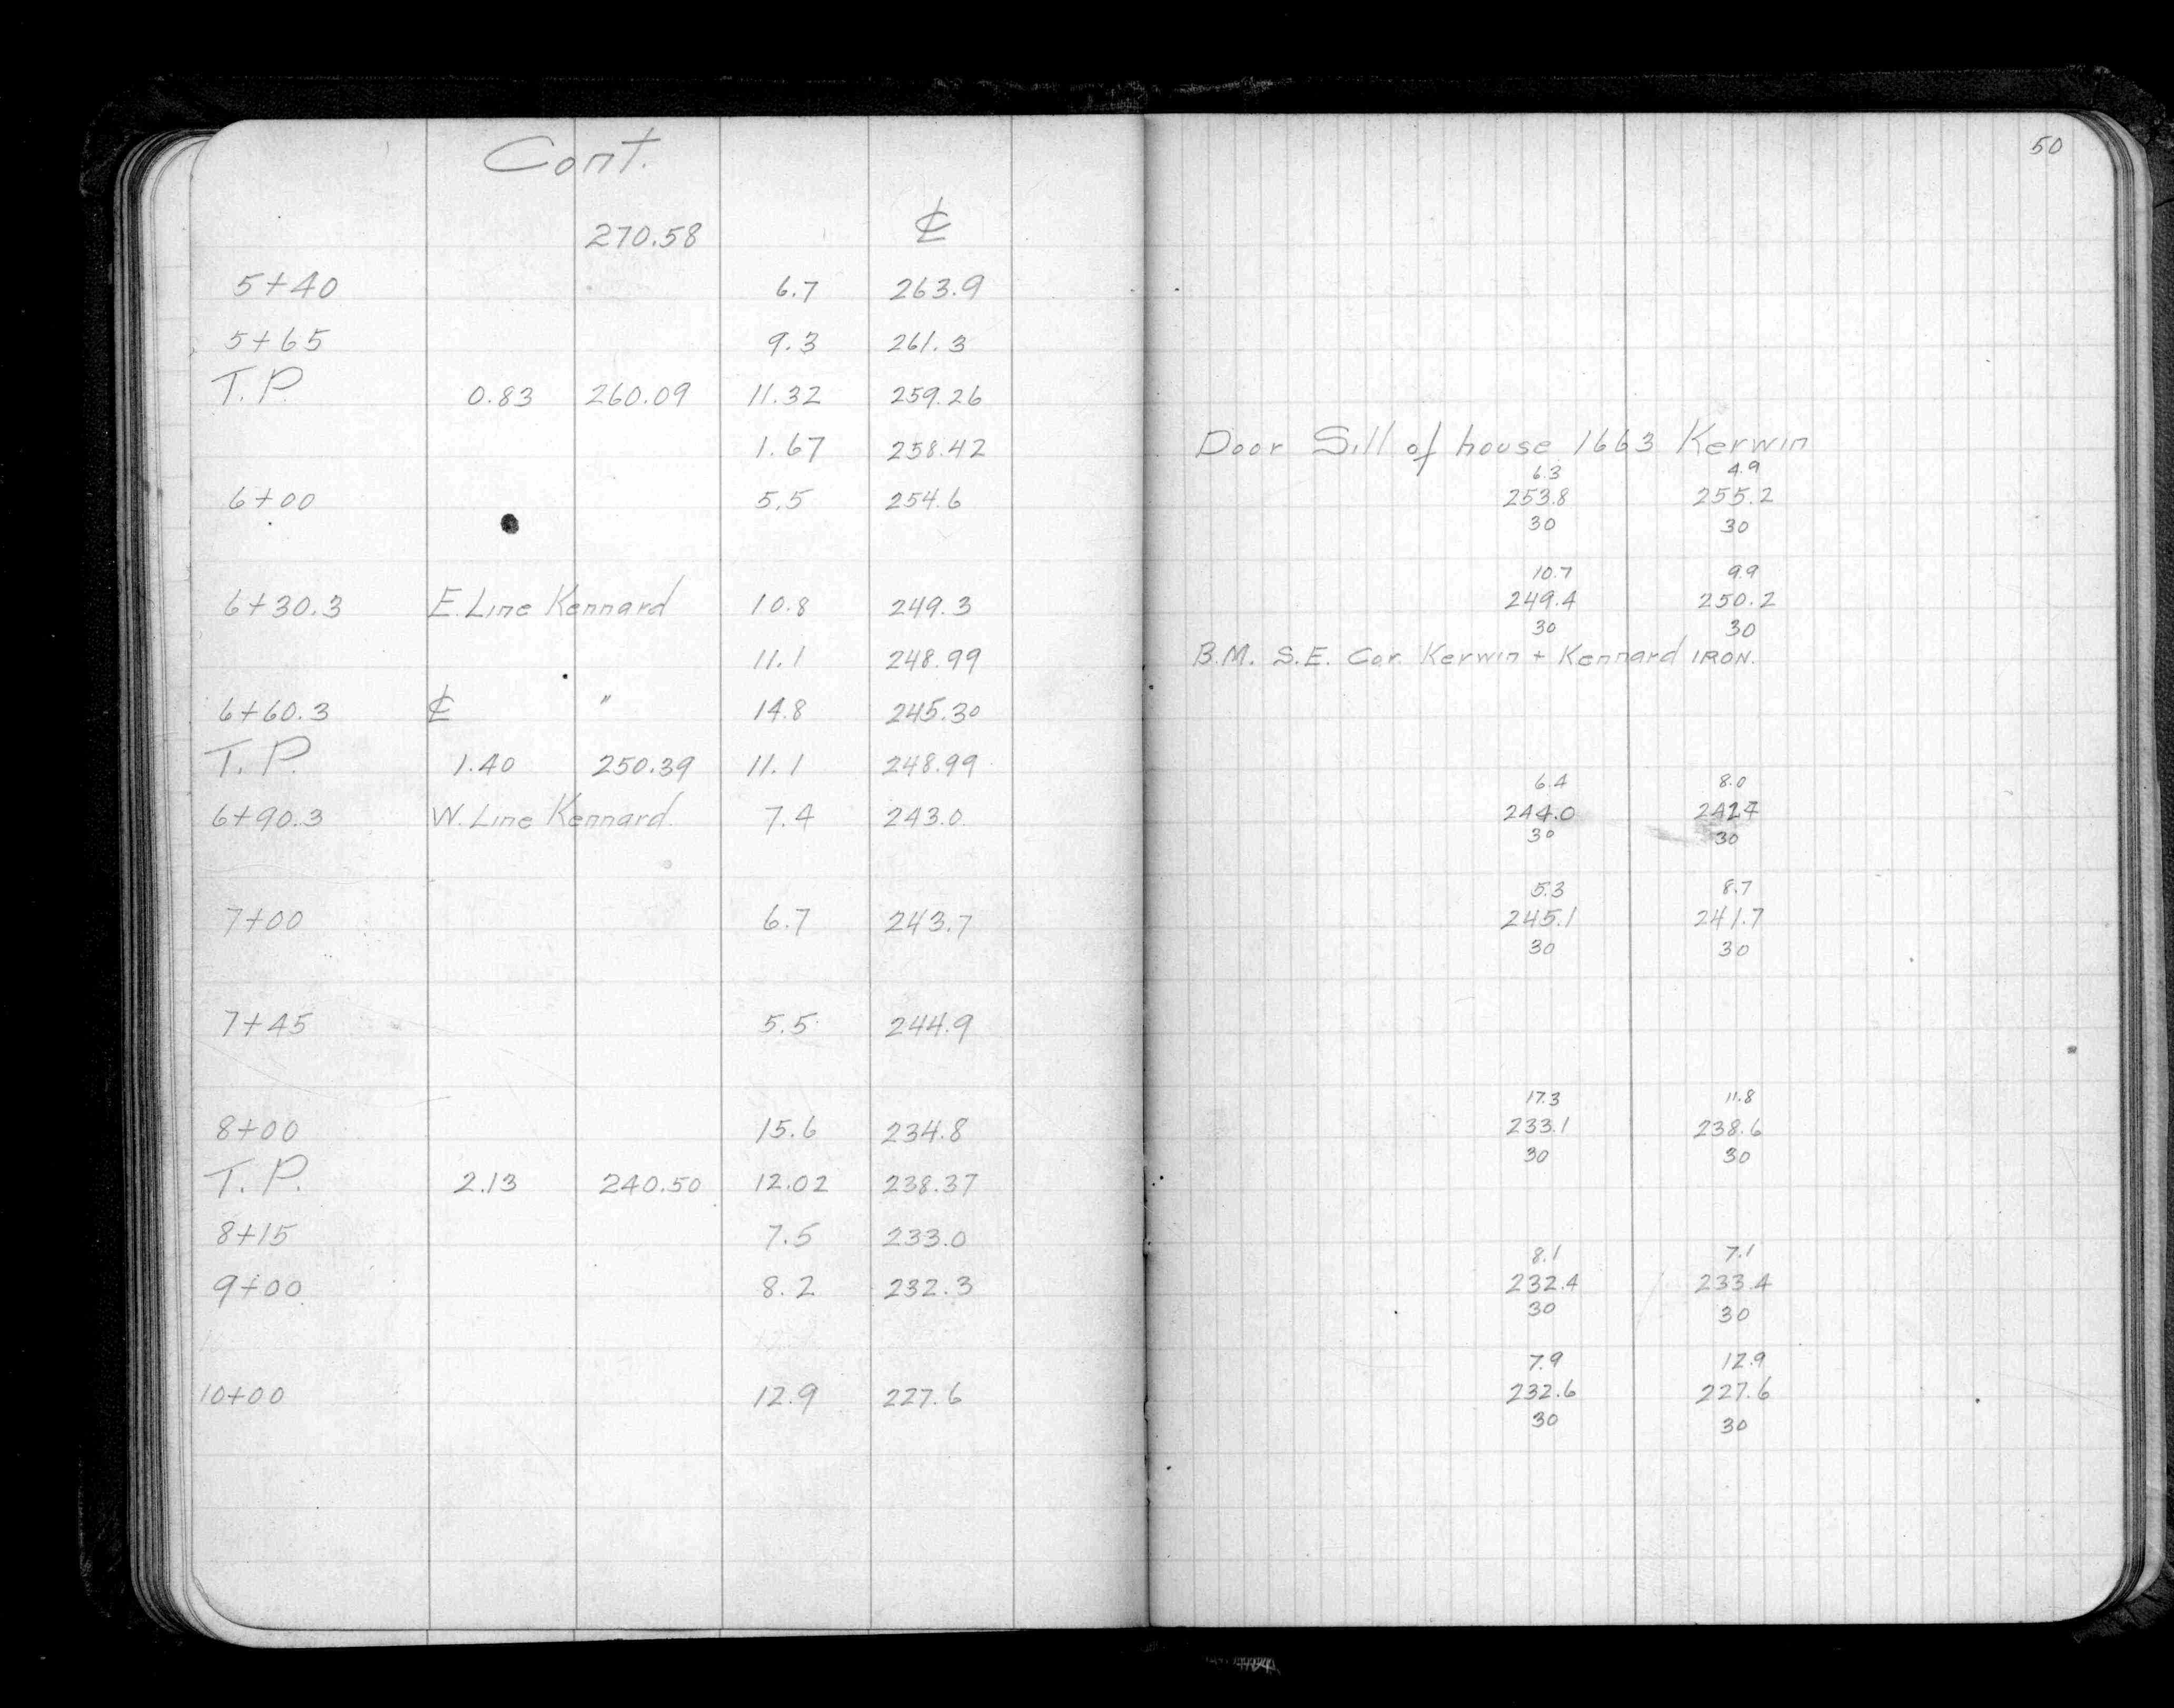 Cont.
270.58 ℄
5+40 6.7 263.9
5+65 9.3 261.3
T.P. 0.83 260.09 11.32 259.26
1.67 258.42
6+00 5.5 254.6
6+30.3 E. Line Kennard 10.8 249.3
11.1 248.99
6+60.3 ℄ " 14.8 245.30
T.P. 1.40 250.39 11.1 248.99
6+90.3 W. Line Kennard. 7.4 243.0
7+00 6.7 243.7
7+45 5.5 244.9
8+00 15.6 234.8
T.P. 2.13 240.50 12.02 238.37
8+15 7.5 233.0
9+00 8.2 232.3
10+00 12.9 227.6
50
Door Sill of house 1663 Kerwin
6.3 4.9
253.8 255.2
30 30
10.7 9.9
249.4 250.2
30 30
B.M. S.E. Cor. Kerwin + Kennard IRON.
6.4 8.0
244.0 242.4
30 30
5.3 8.7
245.1 241.7
30 30
17.3 11.8
233.1 238.6
30 30
8.1 7.1
232.4 233.4
30 30
7.9 12.9
232.6 227.6
30 30